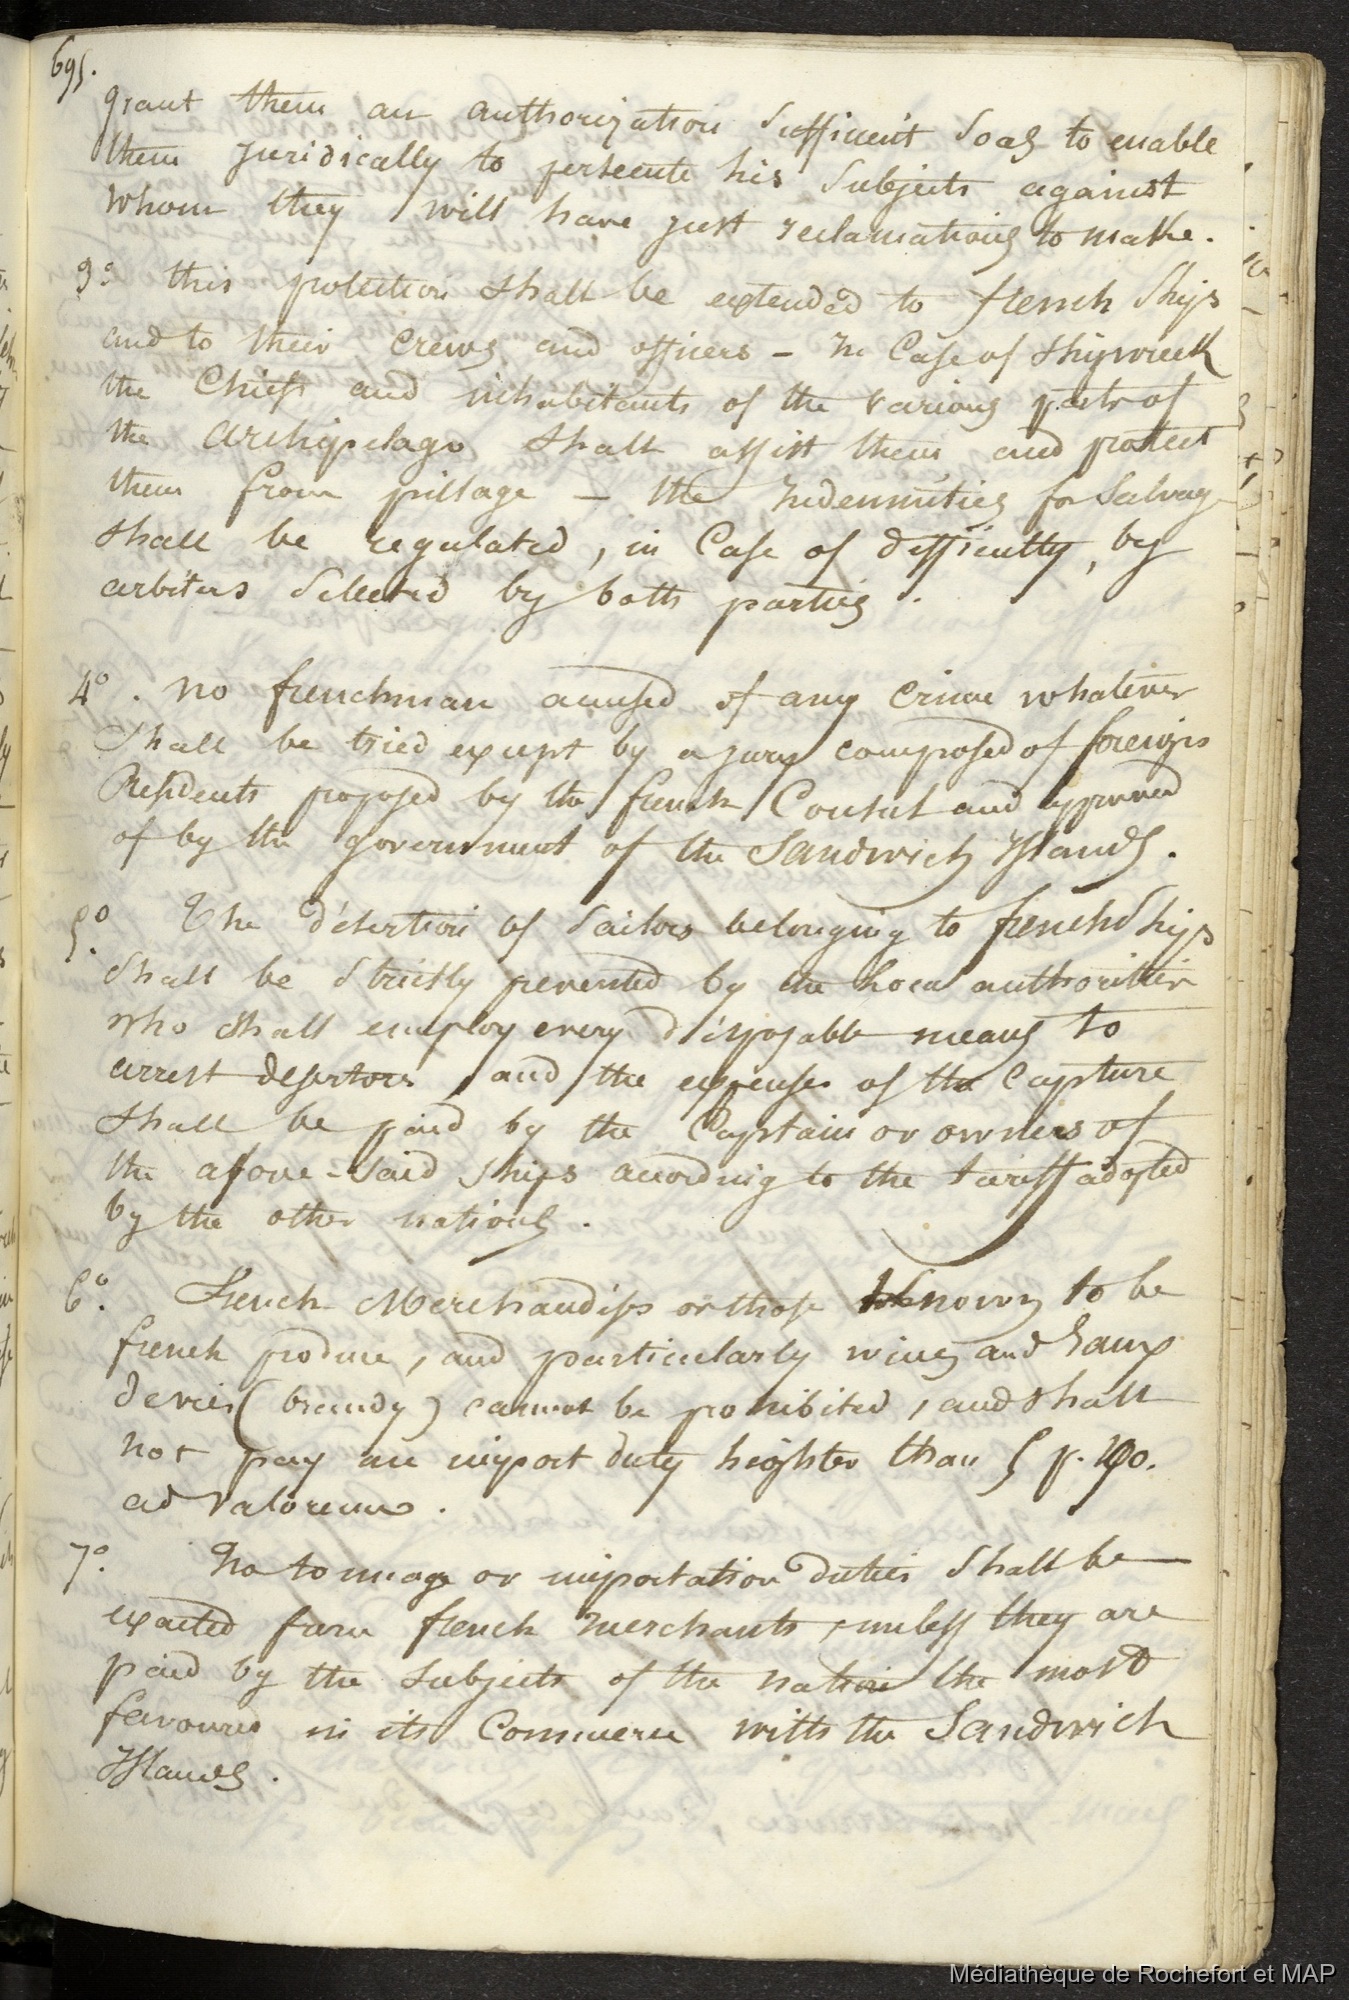 695.
grant them an authorization Sufficient Soas to enable
them juridically to persecute his Subjects against
whom they will have just reclamations to make.
3° this protection shall be extended to french Ships
and to their crews and officers – In Case of shipwreck
the Chiefs and inhabitants of the various parts of
the archipelago shall assist them and protect
them from pillage – the Indemnities for Salvage
shall be regulated, in Case of difficulty, by
arbiters Selected by both parties.
4°. no frenchman accused of any crime whatever
Shall be tried except by a jury composed of foreign
Residents proposed by the french Consul and approved
of by the government of the Sandwich Islands.
5° The désertion of Sailors belonging to french Ships
Shall be Strictly prevented by the local authorities
who shall employ every disposable means to
arrest deserters, and the expenses of the capture
shall be paid by the Captain or owners of
the afore-Said Ships according to the tariff adopted
by the other nations.
6°. French Merchandises or those known to be
french produce, and particularly wines and Eaux
de vies (brandy) cannot be prohibited, and shall
not pay an import duty heighter than 5 p. 100.
ad valoreum.
7°. No tonnage or importation duties Shall be
exacted from french merchants, unless they are
paid by the subjects of the nation the most
favoured in its Commerce with the Sandwich
Islands.
Médiathèque de Rochefort et MAP